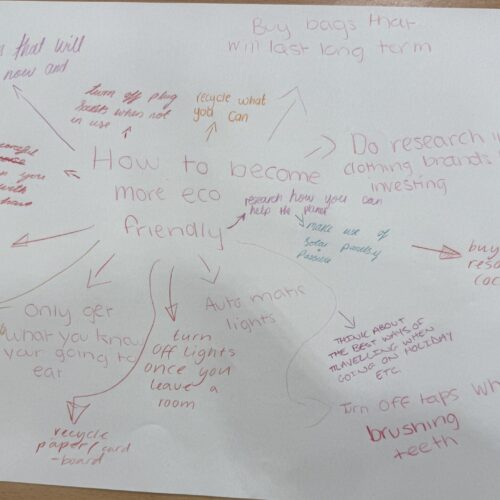 Buy bags that
will last long term
that will
now and
turn off plug
when not
in use
recycle what
you can
Do research
clothing brands
investing
How to become
more eco
friendly
research how you can
help the planet
make use of
solar panels if
you
with
buy
Only get
what you know
your going to
eat
Automatic
lights
turn
off lights
once you
leave a
room
THINK ABOUT
THE BEST WAYS OF
TRAVELLING WHEN
GOING ON HOLIDAY
ETC
Turn off taps
brushing
teeth
recycle
paper/card
-board